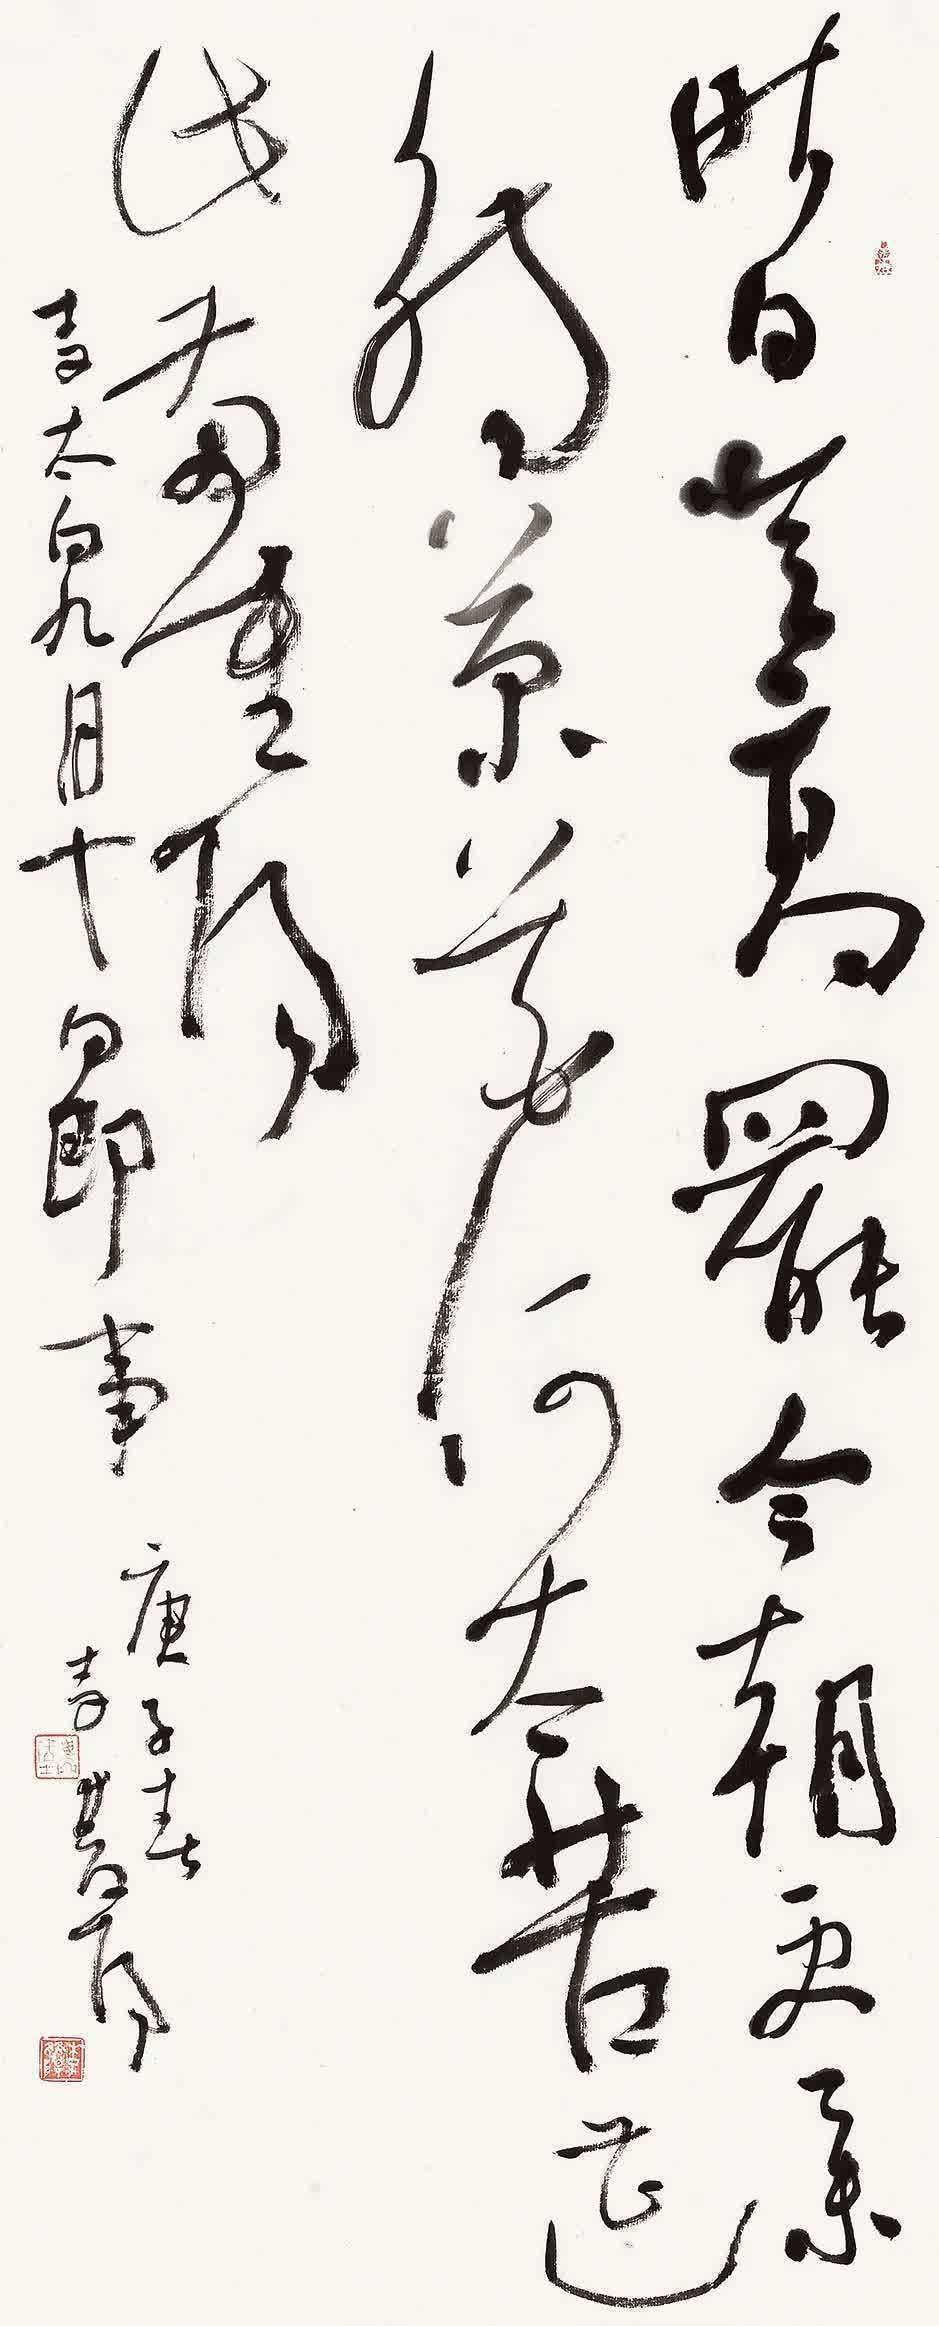 昨日登高罷今朝更舉
觴菊花何太苦遭
此兩重陽
李太白九月十日即事
庚子春
李陽